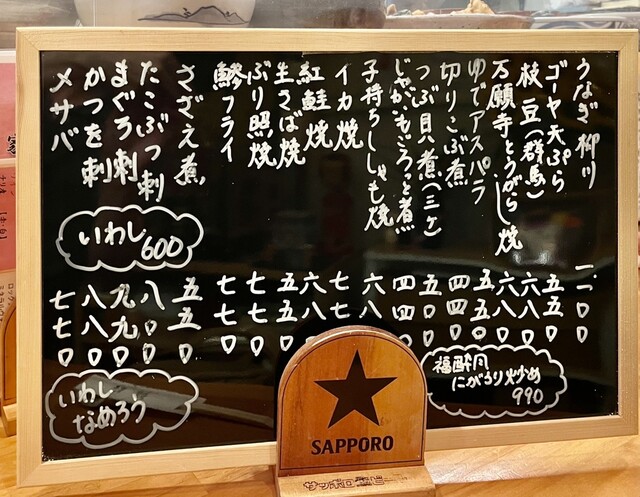 うなぎ柳川 一二〇〇
ゴーヤ天ぷら 五五〇
枝豆(群馬) 六八〇
万願寺とうがらし焼 六八〇
ゆでアスパラ 五五〇
切りこぶ煮 四四〇
つぶ貝煮(三ヶ) 五〇〇
じゃがもごろっと煮 四四〇
子持ちししゃも焼 六八〇
イカ焼 七七
紅鮭焼 六八〇
生さば焼 五五〇
ぶり照焼 七七〇
鯵フライ 七七〇
さざえ煮 五五〇
たこぶつ刺 八〇〇
まぐろ刺 九九〇
かつを刺 八八〇
メサバ 七七〇
いわし600
いわし
なめろう
福酔月
にがうり炒め
990
SAPPORO
サッポロ生ビ